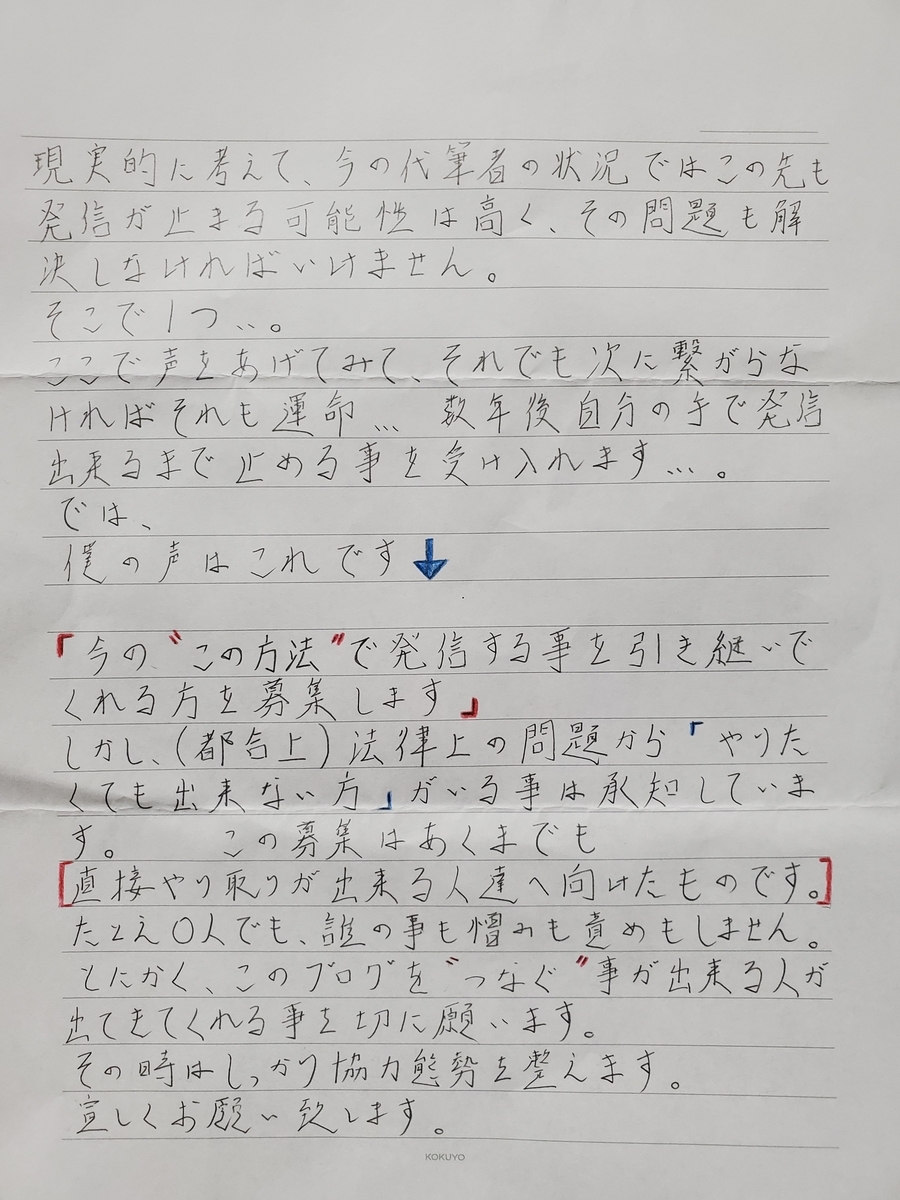 現実的に考えて、今の代筆者の状況ではこの先も
発信が止まる可能性は高く、その問題も解
決しなければいけません。
そこで1つ…。
ここで声をあげてみて、それでも次に繋がらな
ければそれも運命… 数年後自分の手で発信
出来るまで止める事を受け入れます…。
では、
僕の声はこれです↓
「今の〝この方法〟で発信する事を引き継いで
くれる方を募集します」
しかし、(都合上)法律上の問題から「やりた
くても出来ない方」がいる事は承知していま
す。 この募集はあくまでも
[直接やり取りが出来る人達へ向けたものです。]
たとえ0人でも、誰の事も憎みも責めもしません。
とにかく、このブログを〝つなぐ〟事が出来る人が
出てきてくれる事を切に願います。
その時はしっかり協力態勢を整えます。
宜しくお願い致します。
KOKUYO